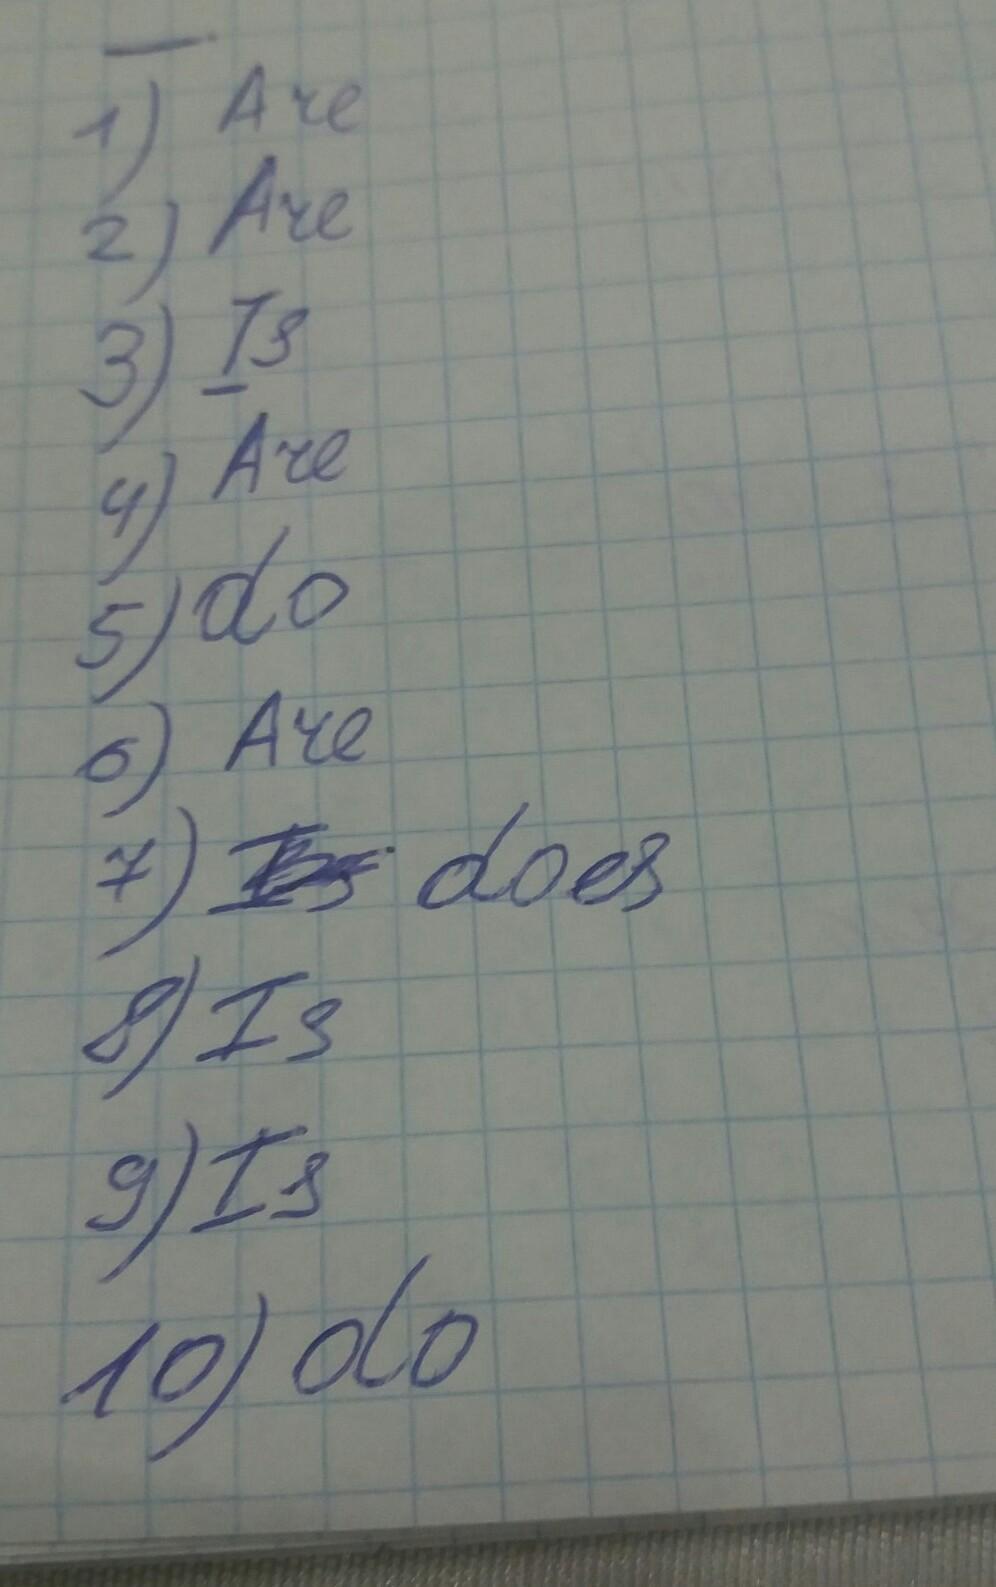 1) Are
2) Are
3) Is
4) Are
5) do
6) Are
7) does
8) Is
9) Is
10) do